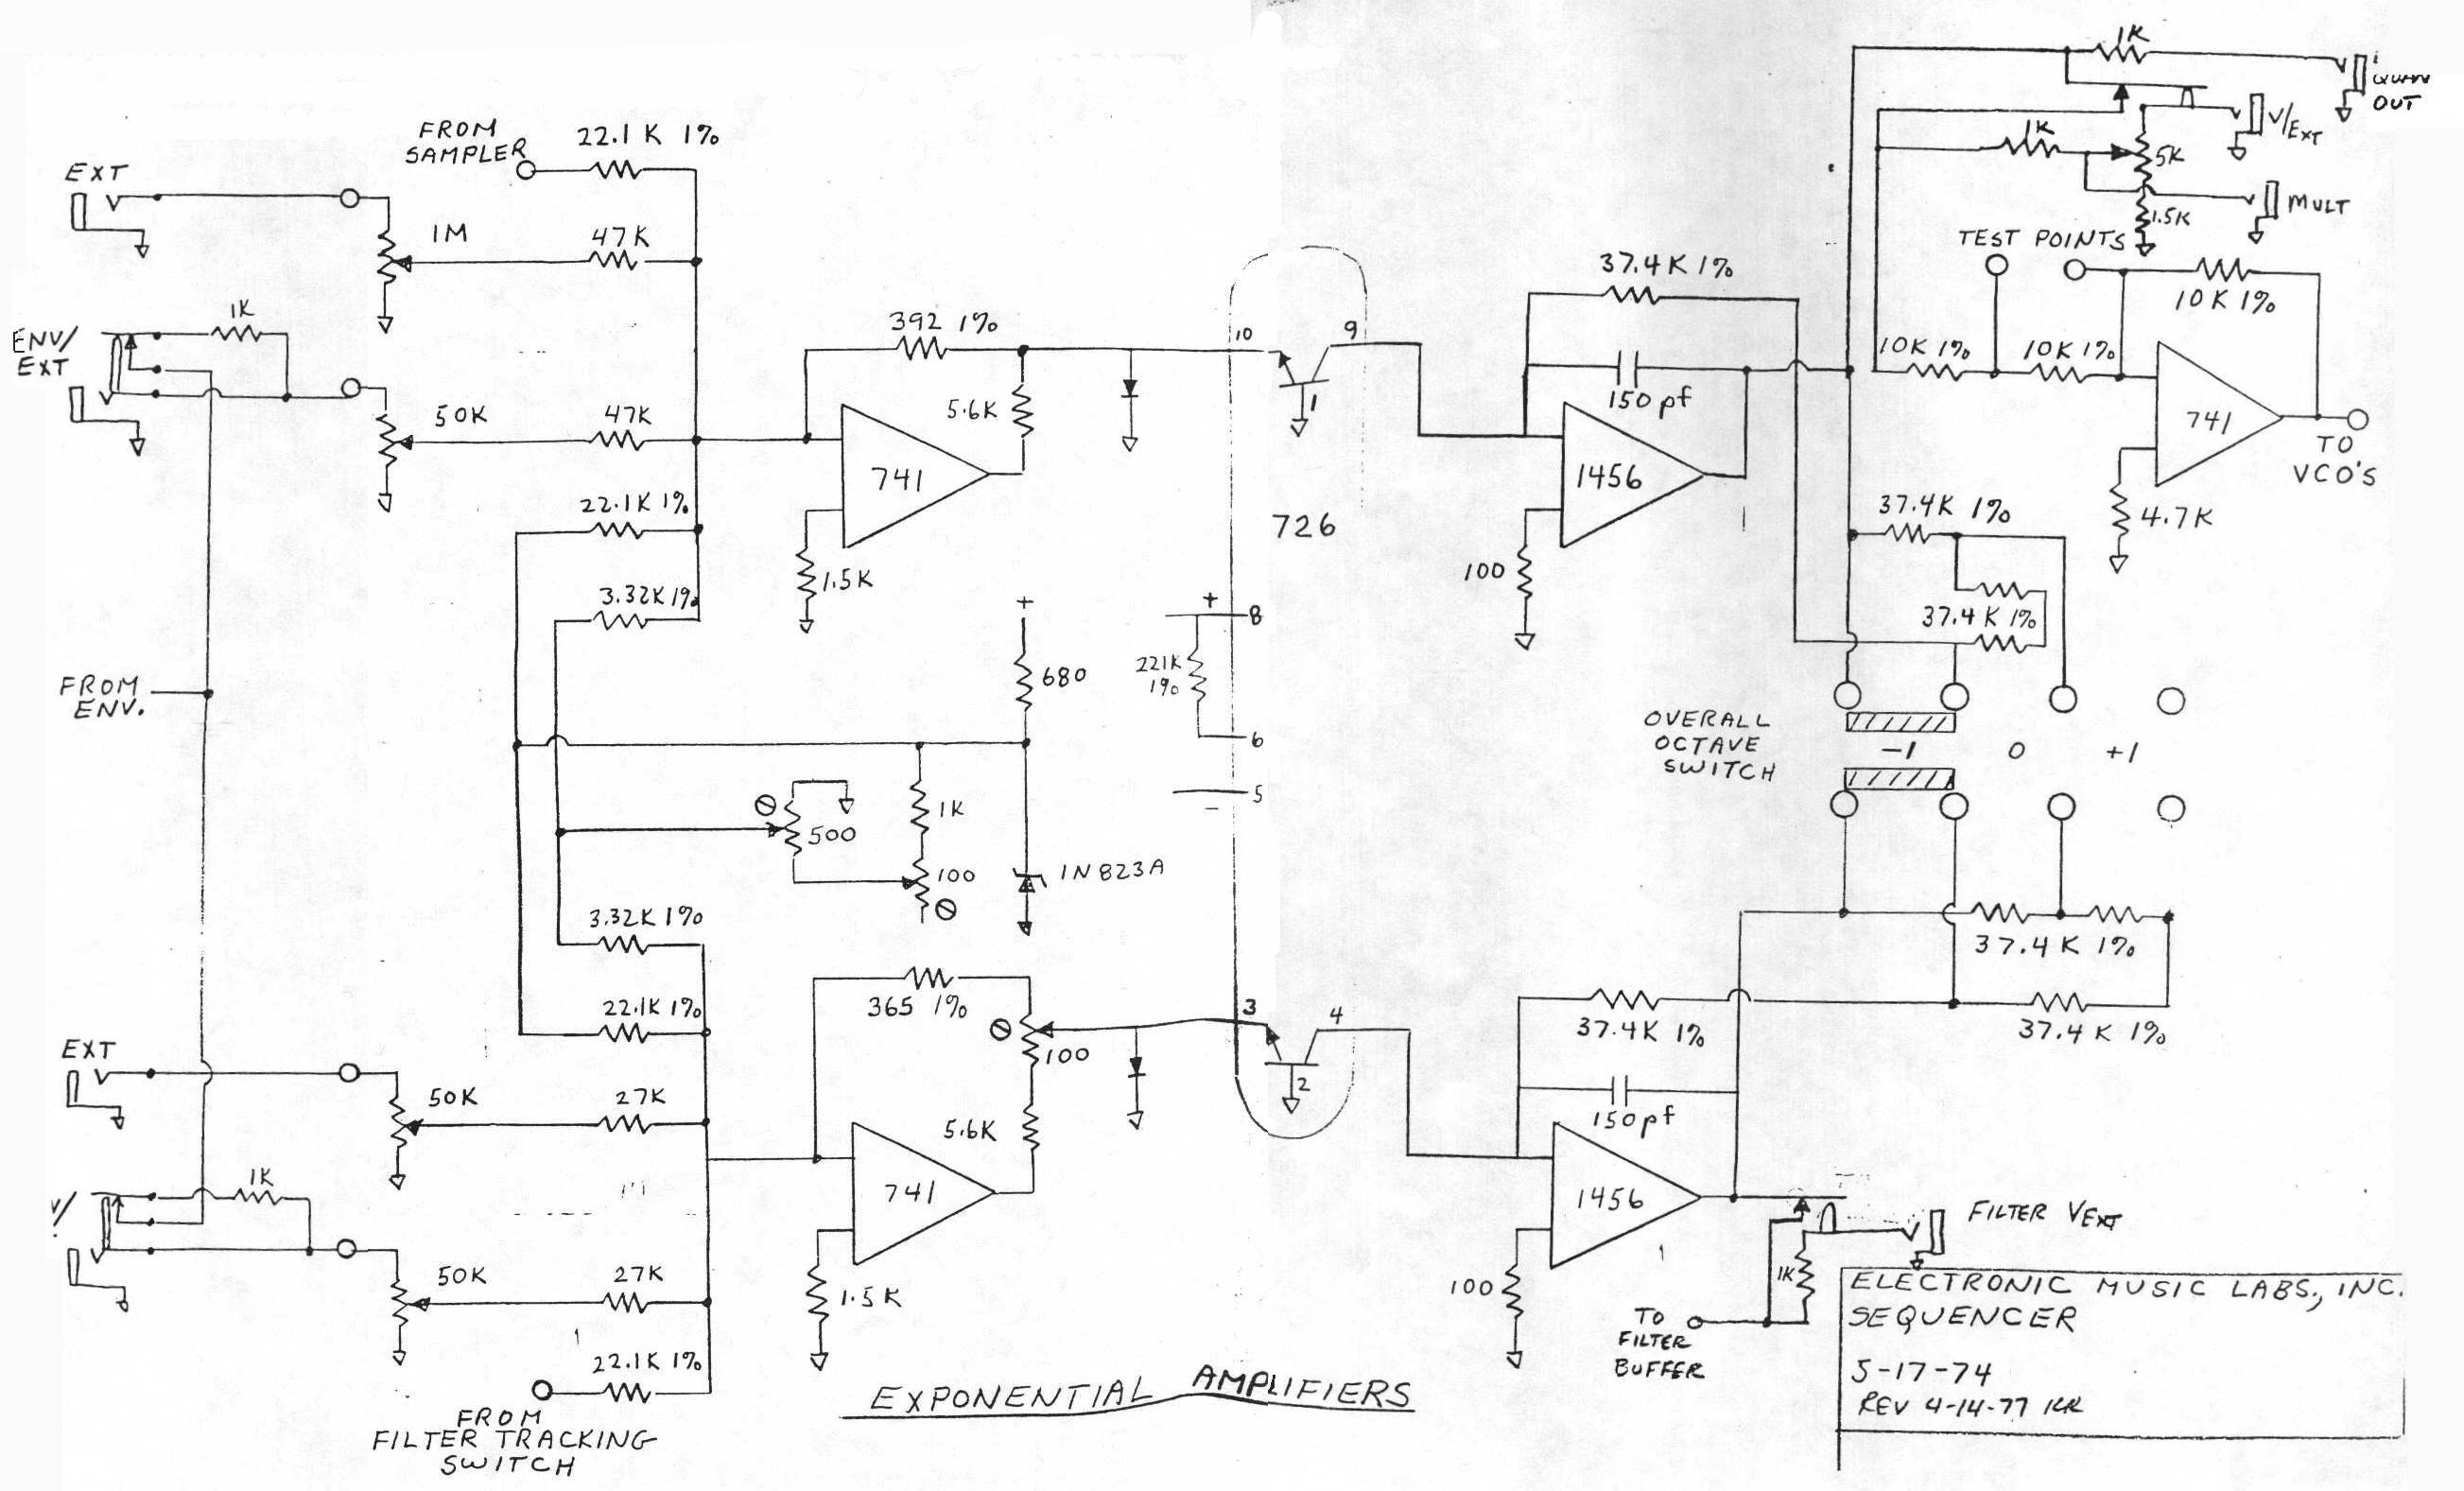 1K
QUAN
OUT
V/EXT
1K
5K
MULT
1.5K
TEST POINTS
10K 1%
10K 1%
10K 1%
741
TO
VCO'S
4.7K
FROM
SAMPLER
22.1 K 1%
EXT
1M
47K
ENV/
EXT
1K
50K
47K
22.1K 1%
3.32K 1%
392 1%
5.6K
741
1.5K
10
9
1
726
37.4K 1%
150pf
1456
100
37.4K 1%
37.4K 1%
FROM
ENV.
+
680
+
8
221K
1%
6
5
-
OVERALL
OCTAVE
SWITCH
-1
0
+1
500
1K
100
1N823A
3.32K 1%
22.1K 1%
365 1%
100
5.6K
3
4
2
37.4 K 1%
37.4K 1%
37.4 K 1%
150pf
EXT
50K
27K
1K
50K
27K
22.1K 1%
FROM
FILTER TRACKING
SWITCH
741
1.5K
1456
100
FILTER VEXT
1K
TO
FILTER
BUFFER
EXPONENTIAL AMPLIFIERS
ELECTRONIC MUSIC LABS., INC.
SEQUENCER
5-17-74
REV 4-14-77